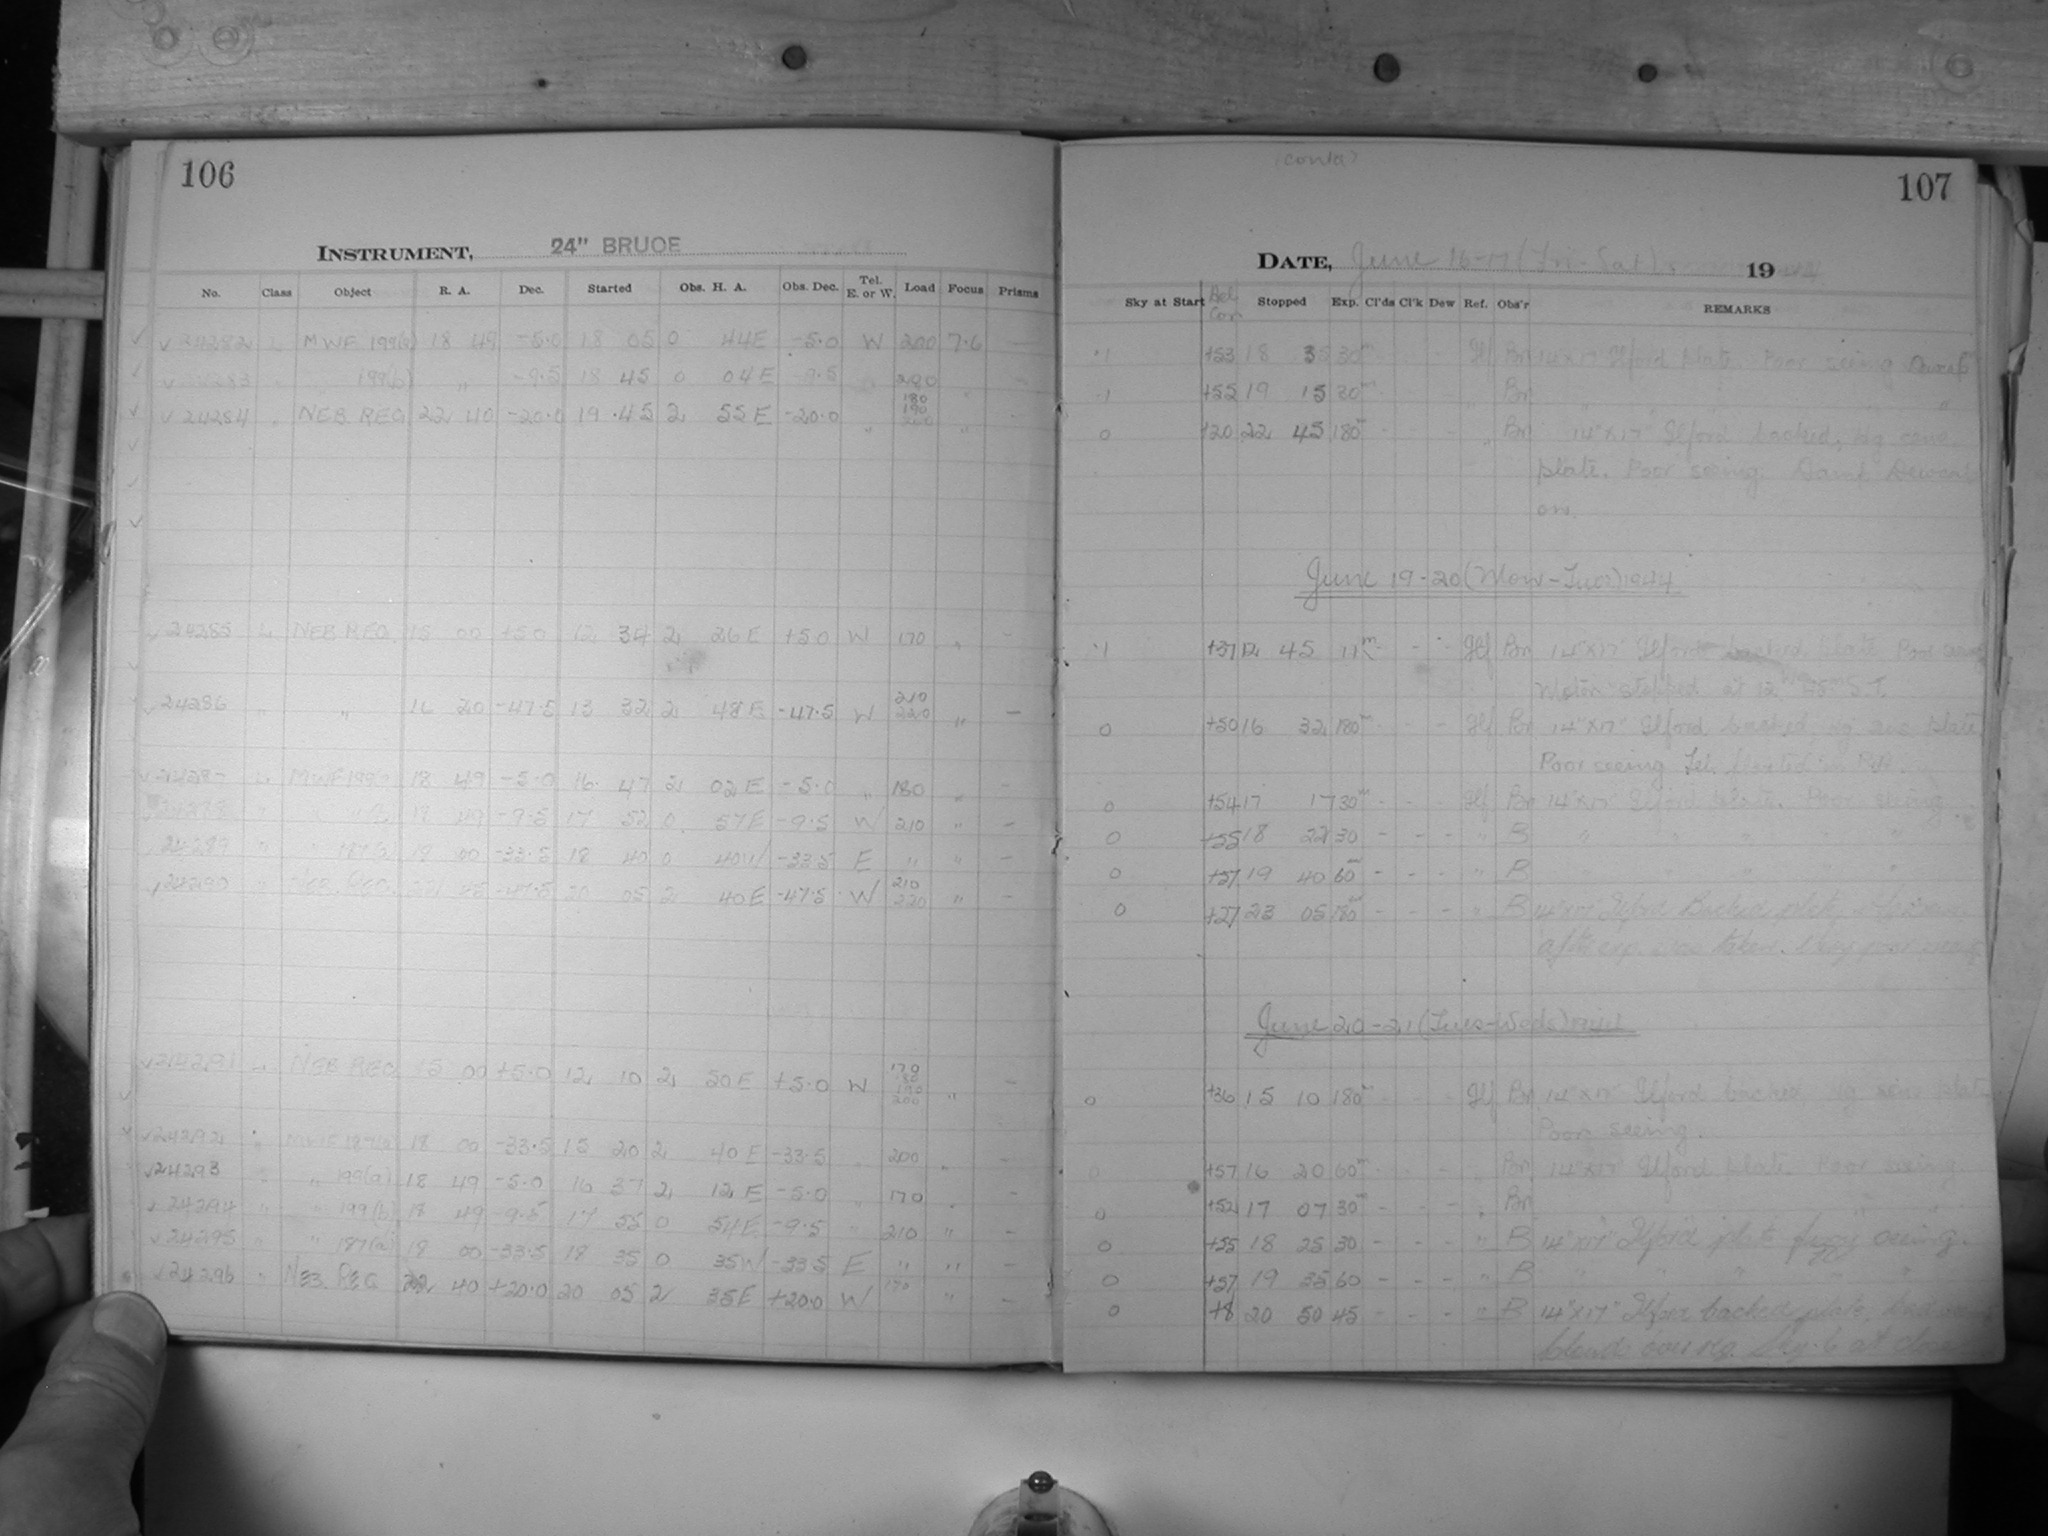 106
INSTRUMENT, 24" BRUCE
No. Class Object R. A. Dec. Started Obs. H. A. Obs. Dec. Tel. E. or W. Load Focus Prisms
24282 L MWF 199(a) 18 49 -5.0 18 05 0 44E -5.0 W 200 7.6 -
24283 " 199(b) " -9.5 18 45 0 04E -9.5 " 200 " -
24284 " NEB REG 22 40 -20.0 19 45 2 55E -20.0 " 180 190 200 "
24285 L NEB REG 15 00 +5.0 12 34 2 26E +5.0 W 170 " -
24286 " " 16 20 -47.5 13 32 2 48E -47.5 W 210 220 " -
L MWF 199 18 49 -5.0 16 47 2 02E -5.0 " 180 " -
24288 " 18 49 -9.5 17 52 0 57E -9.5 W 210 " -
24289 " " 187 18 00 -33.5 18 40 0 40W -33.5 E " " -
24290 " NEB. REG. 22 45 -47.5 20 05 2 40E -47.5 W 210 220 " -
24291 L NEB REG 15 00 +5.0 12 10 2 50E +5.0 W 170 180 190 200 " -
24292 " MWF 187(a) 18 00 -33.5 15 20 2 40E -33.5 " 200 " -
24293 " " 199(a) 18 49 -5.0 16 37 2 12E -5.0 " 170 " -
24294 " " 199(b) 18 49 -9.5 17 55 0 54E -9.5 " 210 " -
24295 " " 187(a) 18 00 -33.5 18 35 0 35W -33.5 E " " -
24296 " NEB. REG 22 40 +20.0 20 05 2 35E +20.0 W 170 " -
(contd)
107
DATE, June 16-17 (Fri-Sat) 19
Sky at Start Del Cor Stopped Exp. Cl'ds Cl'k Dew Ref. Obs'r REMARKS
.1 +53 18 35 30m - - - Ilf Bn 14"x17" Ilford plate. Poor seeing Damp
.1 +55 19 15 30m - - - " Bn " " "
0 +20 22 45 180m - - - " Bn 14"x17" Ilford backed, Hg sens
plate. Poor seeing. Damp Dewcap
on.
June 19-20 (Mon-Tues) 1944
.1 +37 12 45 11m - - - Ilf Bn 14"x17" Ilford backed plate Poor seeing
Motor stopped at 12 45 S.T.
0 +50 16 32 180m - - - Ilf Bn 14"x17" Ilford backed, Hg sens plate
Poor seeing Tel.
0 +54 17 17 30m - - - Ilf Bn 14"x17" Ilford plate. Poor seeing.
0 +55 18 22 30 - - - " B " " " " "
0 +57 19 40 60m - - - " B " " " " "
0 +27 23 05 180m - - - " B 14"x17" Ilford Backed plate
after exp. was taken. Very poor seeing
June 20-21 (Tues-Weds) 1944
0 +36 15 10 180m - - - Ilf Bn 14"x17" Ilford backed, Hg sens plate
Poor seeing.
0 +57 16 20 60m - - - " Bn 14"x17" Ilford plate Poor seeing
0 +52 17 07 30m - - - " Bn " "
0 +55 18 25 30 - - - " B 14"x17" Ilford plate fuzzy seeing.
0 +57 19 35 60 - - - " B " " " " "
0 +8 20 50 45 - - - " B 14"x17" Ilford backed plate,
clouds over reg. Sky .6 at close